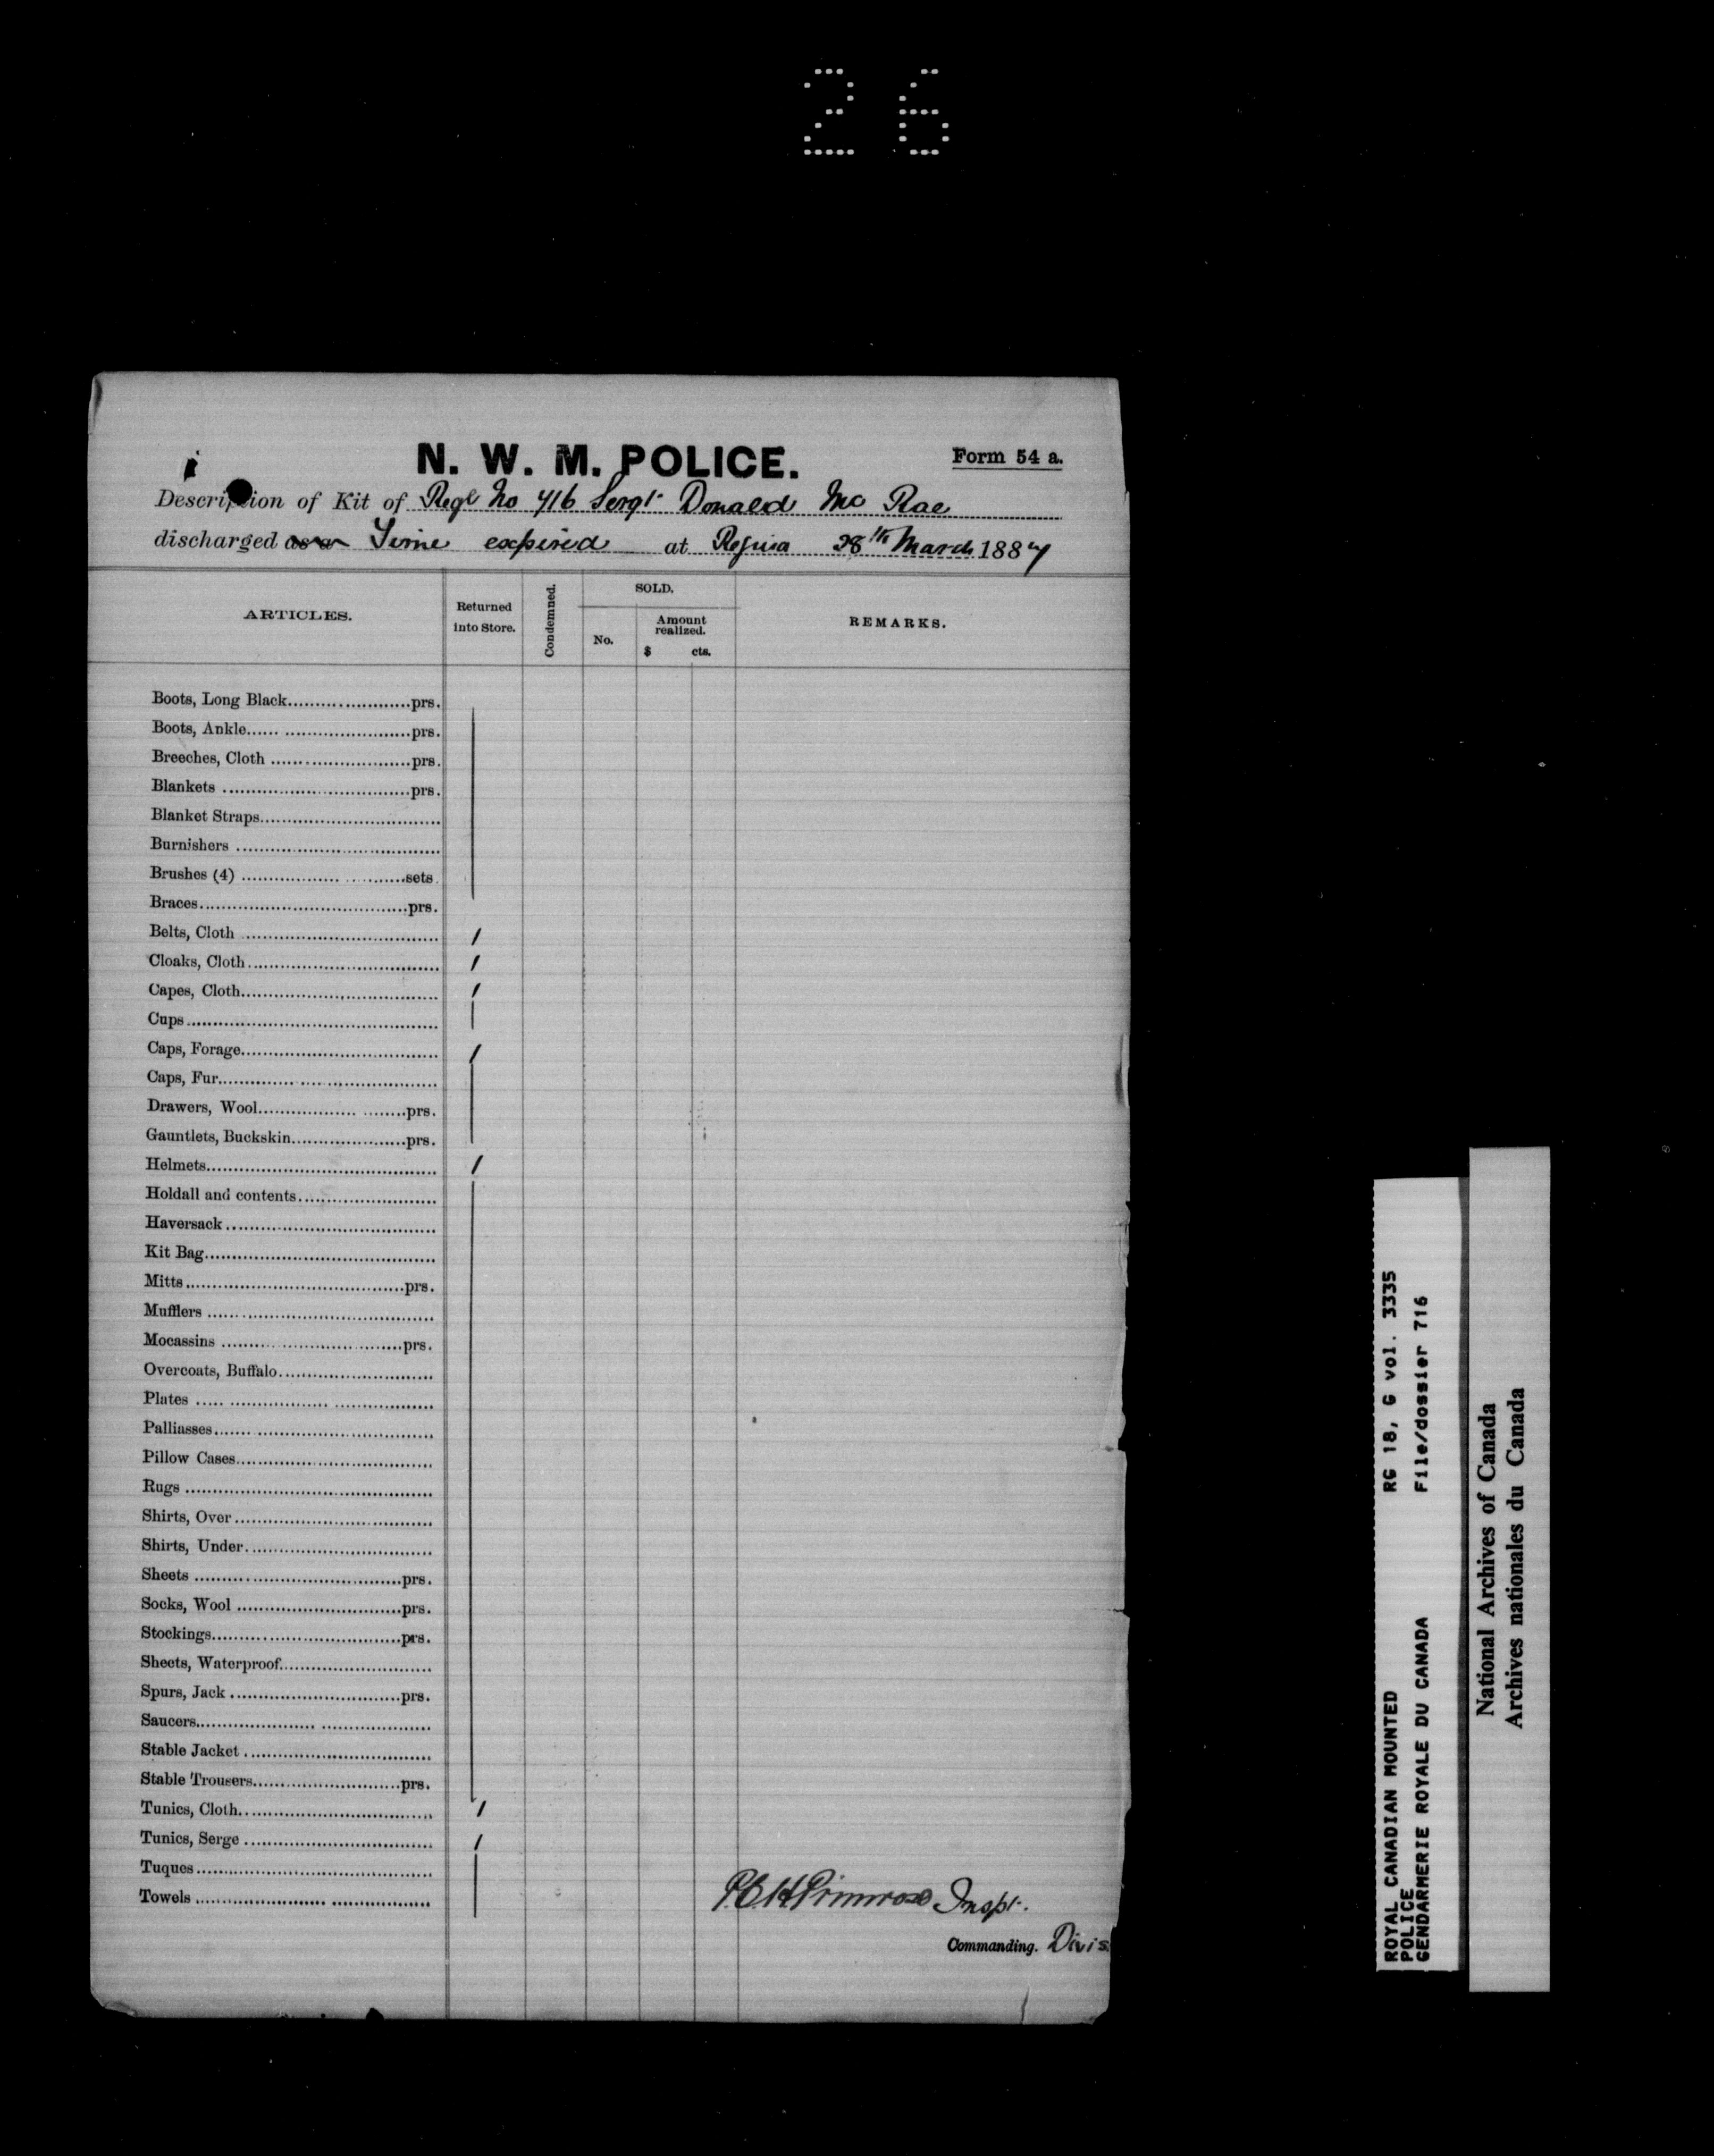 26
N. W. M. POLICE.
Form 54 a.
Description of Kit of Regl No 716 Sergt Donald Mc Rae
discharged as a Time expired at Regina 28th March 1887
ARTICLES.
Returned into Store.
Condemned.
SOLD.
No.
Amount realized.
$ cts.
REMARKS.
Boots, Long Black prs.
Boots, Ankle prs.
Breeches, Cloth prs.
Blankets prs.
Blanket Straps
Burnishers
Brushes (4) sets.
Braces prs.
Belts, Cloth 1
Cloaks, Cloth 1
Capes, Cloth 1
Cups
Caps, Forage 1
Caps, Fur
Drawers, Wool prs.
Gauntlets, Buckskin prs.
Helmets 1
Holdall and contents
Haversack
Kit Bag
Mitts prs.
Mufflers
Mocassins prs.
Overcoats, Buffalo
Plates
Palliasses
Pillow Cases
Rugs
Shirts, Over
Shirts, Under
Sheets prs.
Socks, Wool prs.
Stockings prs.
Sheets, Waterproof
Spurs, Jack prs.
Saucers
Stable Jacket
Stable Trousers prs.
Tunics, Cloth 1
Tunics, Serge 1
Tuques
Towels
P.C.H. Primrose Inspt.
Commanding. Divis
ROYAL CANADIAN MOUNTED RG 18, G vol. 3335
POLICE
GENDARMERIE ROYALE DU CANADA File/dossier 716
National Archives of Canada
Archives nationales du Canada